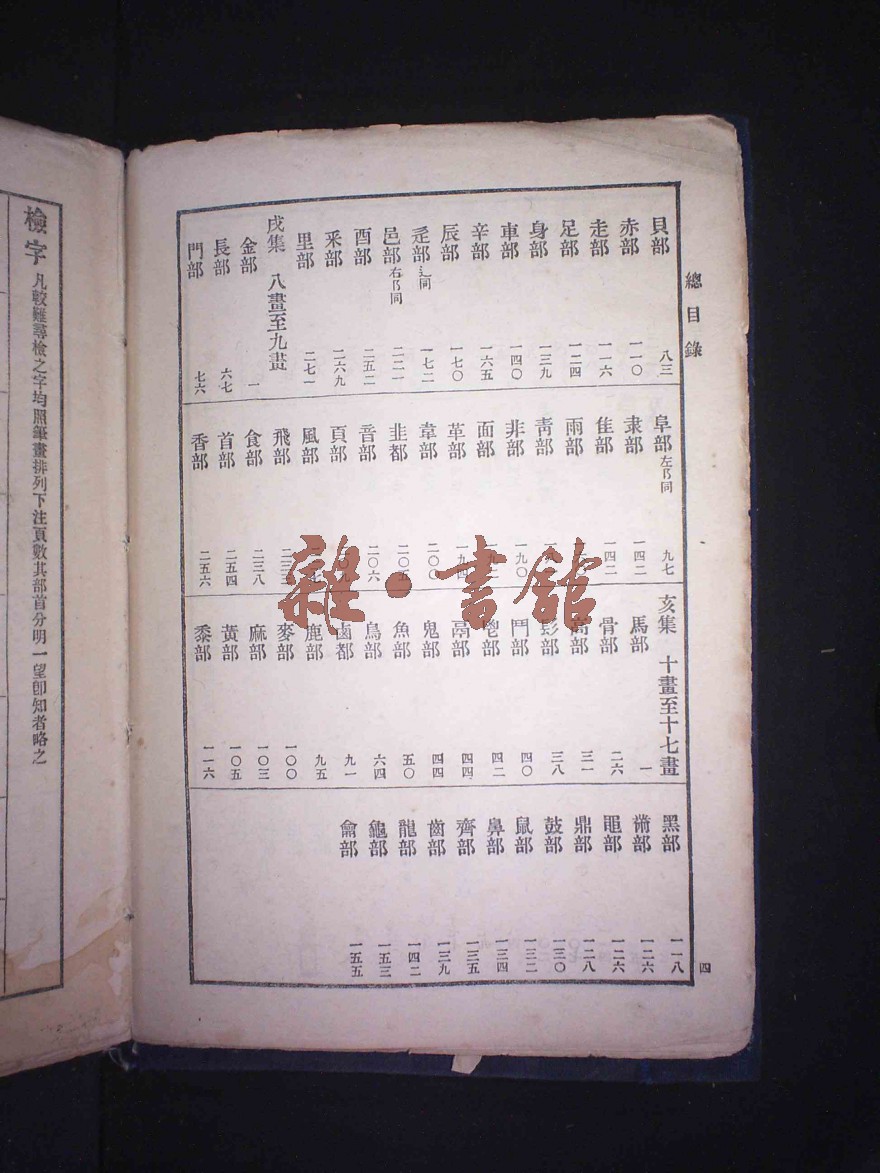 總目錄
貝部 八三
赤部 一一〇
走部 一一六
足部 一二四
身部 一三九
車部 一四〇
辛部 一六五
辰部 一七〇
辵部辶同 一七二
邑部右阝同 二二一
酉部 二五二
釆部 二六九
里部 二七一
戌集 八畫至九畫
金部 一
長部 六七
門部 七六
阜部左阝同 九七
隶部 一四二
隹部 一四二
雨部
靑部
非部 一九〇
面部
革部 一九四
韋部 二〇〇
韭都 二〇五
音部 二〇六
頁部 二〇九
風部
飛部 二三三
食部 二三八
首部 二五四
香部 二五六
亥集 十畫至十七畫
馬部 一
骨部 二六
高部 三一
髟部 三八
鬥部 四〇
鬯部 四二
鬲部 四四
鬼部 四四
魚部 五〇
鳥部 六四
鹵都 九一
鹿部 九五
麥部 一〇〇
麻部 一〇三
黃部 一〇五
黍部 一一六
黑部 一一八
黹部 一二六
黽部 一二六
鼎部 一二八
鼓部 一三〇
鼠部 一三二
鼻部 一三四
齊部 一三五
齒部 一三九
龍部 一四二
龜部 一五三
龠部 一五五
四
檢字 凡較難尋檢之字均照筆畫排列下注頁數其部首分明一望卽知者略之
雜·書館